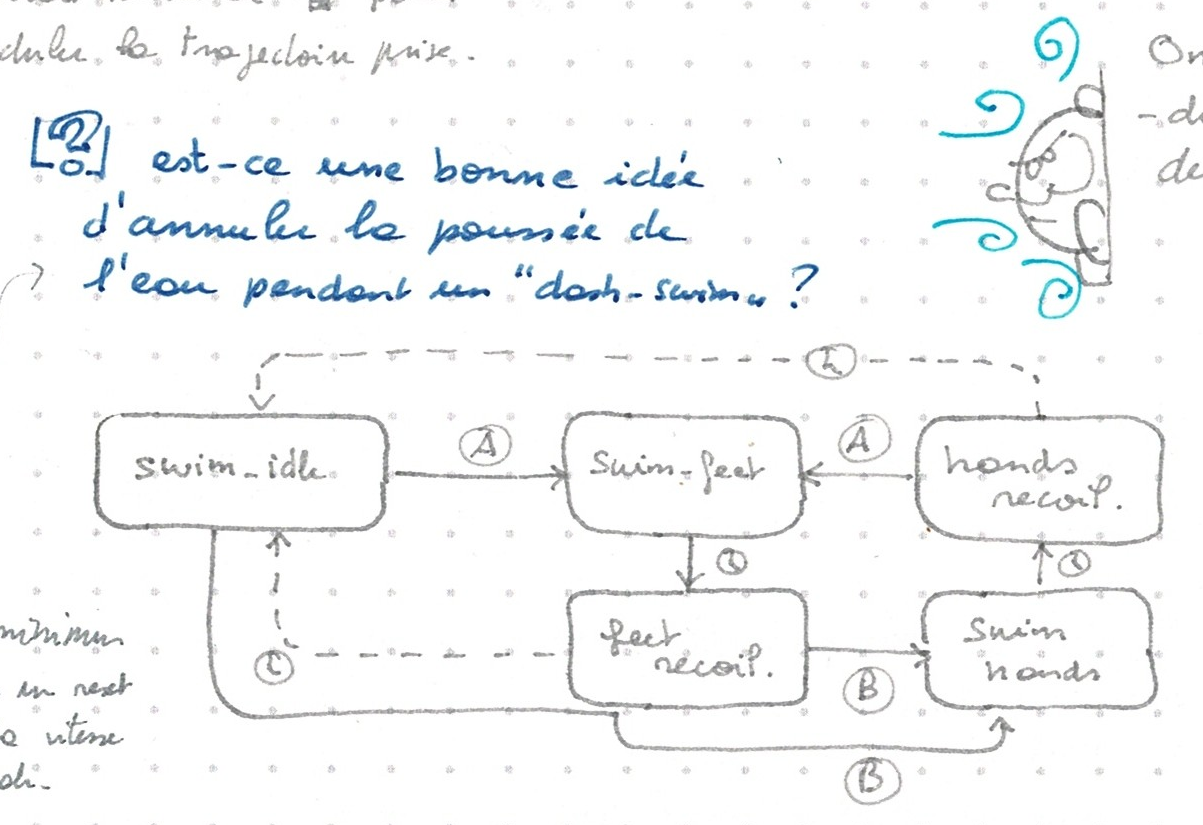 la trajectoire prise.
On
[?] est-ce une bonne idée
- d
d'annuler la poussée de
de
l'eau pendant un "dash-swim" ?
A
A
swim-idle
swim-feet
hands
recoil.
feet
recoil.
swim
hands
B
minimum
un reset
vitesse
B